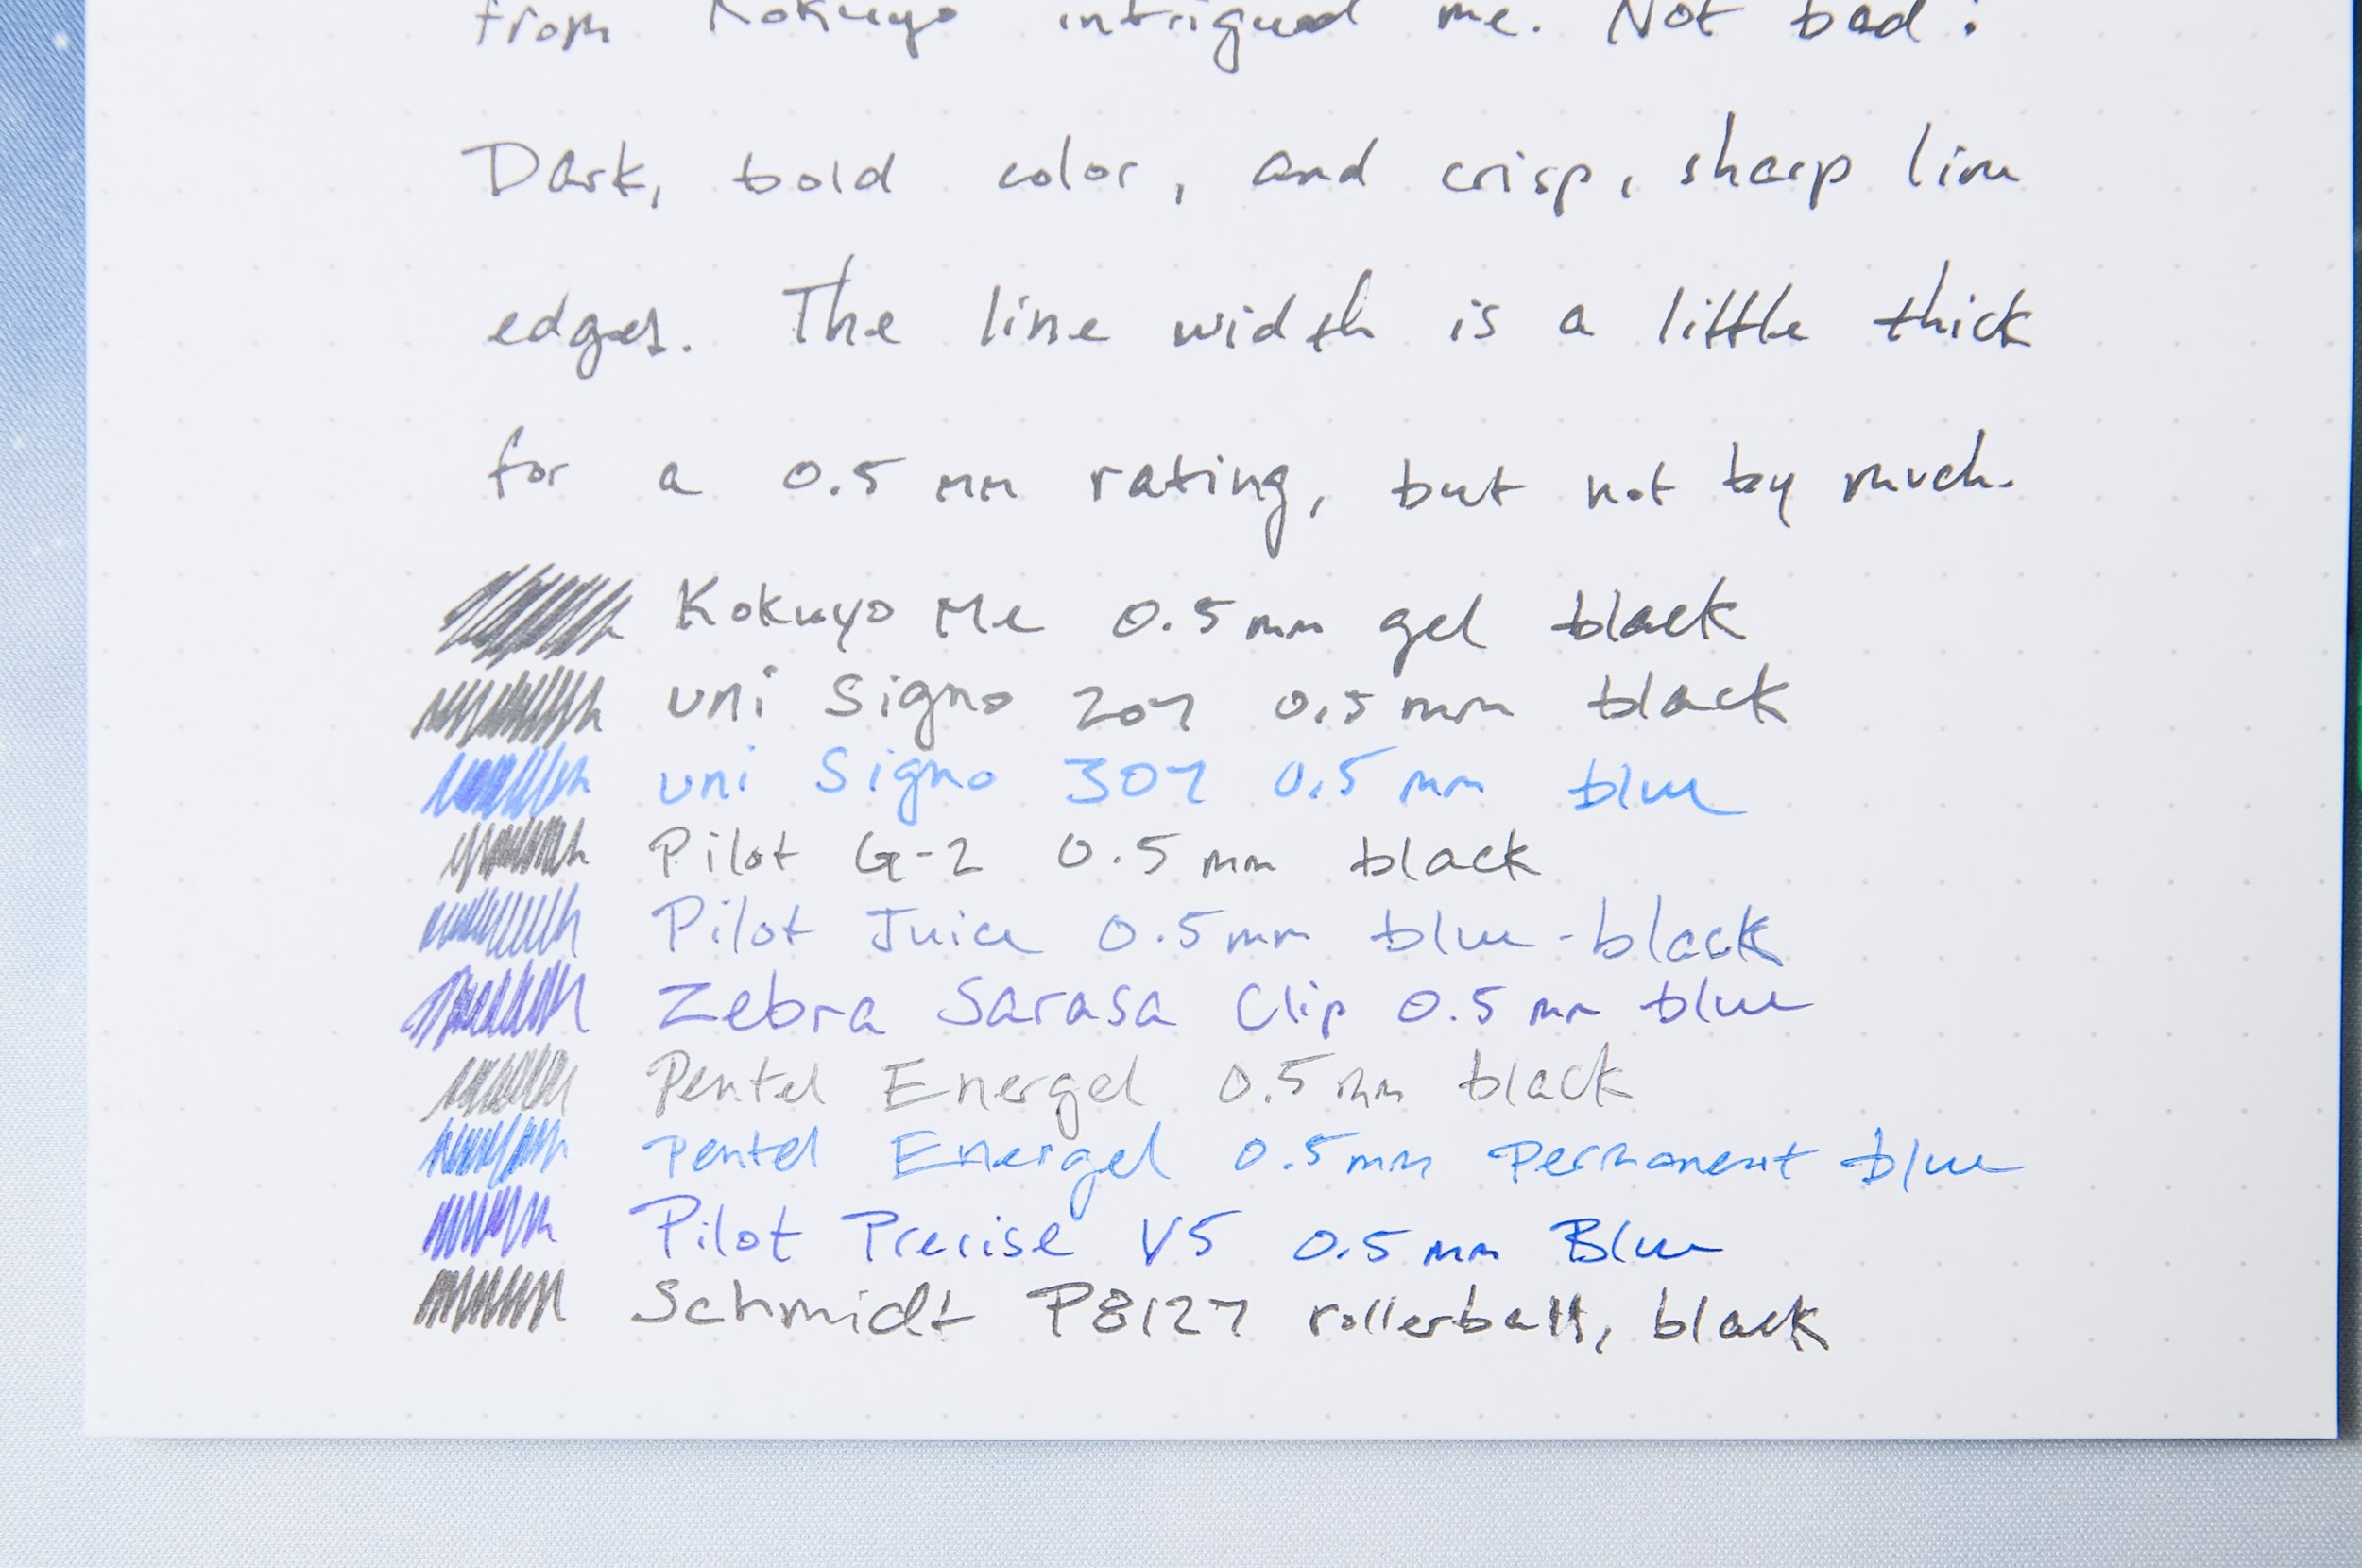 from Kokuyo intrigued me. Not bad!
Dark, bold color, and crisp, sharp line
edges. The line width is a little thick
for a 0.5 mm rating, but not by much.
Kokuyo Me 0.5mm gel black
uni Signo 207 0.5 mm black
uni Signo 307 0.5 mm blue
Pilot G-2 0.5 mm black
Pilot Juice 0.5mm blue-black
Zebra Sarasa Clip 0.5 mm blue
Pentel Energel 0.5mm black
Pentel Energel 0.5mm Permanent blue
Pilot Precise V5 0.5mm Blue
Schmidt P8127 rollerball, black